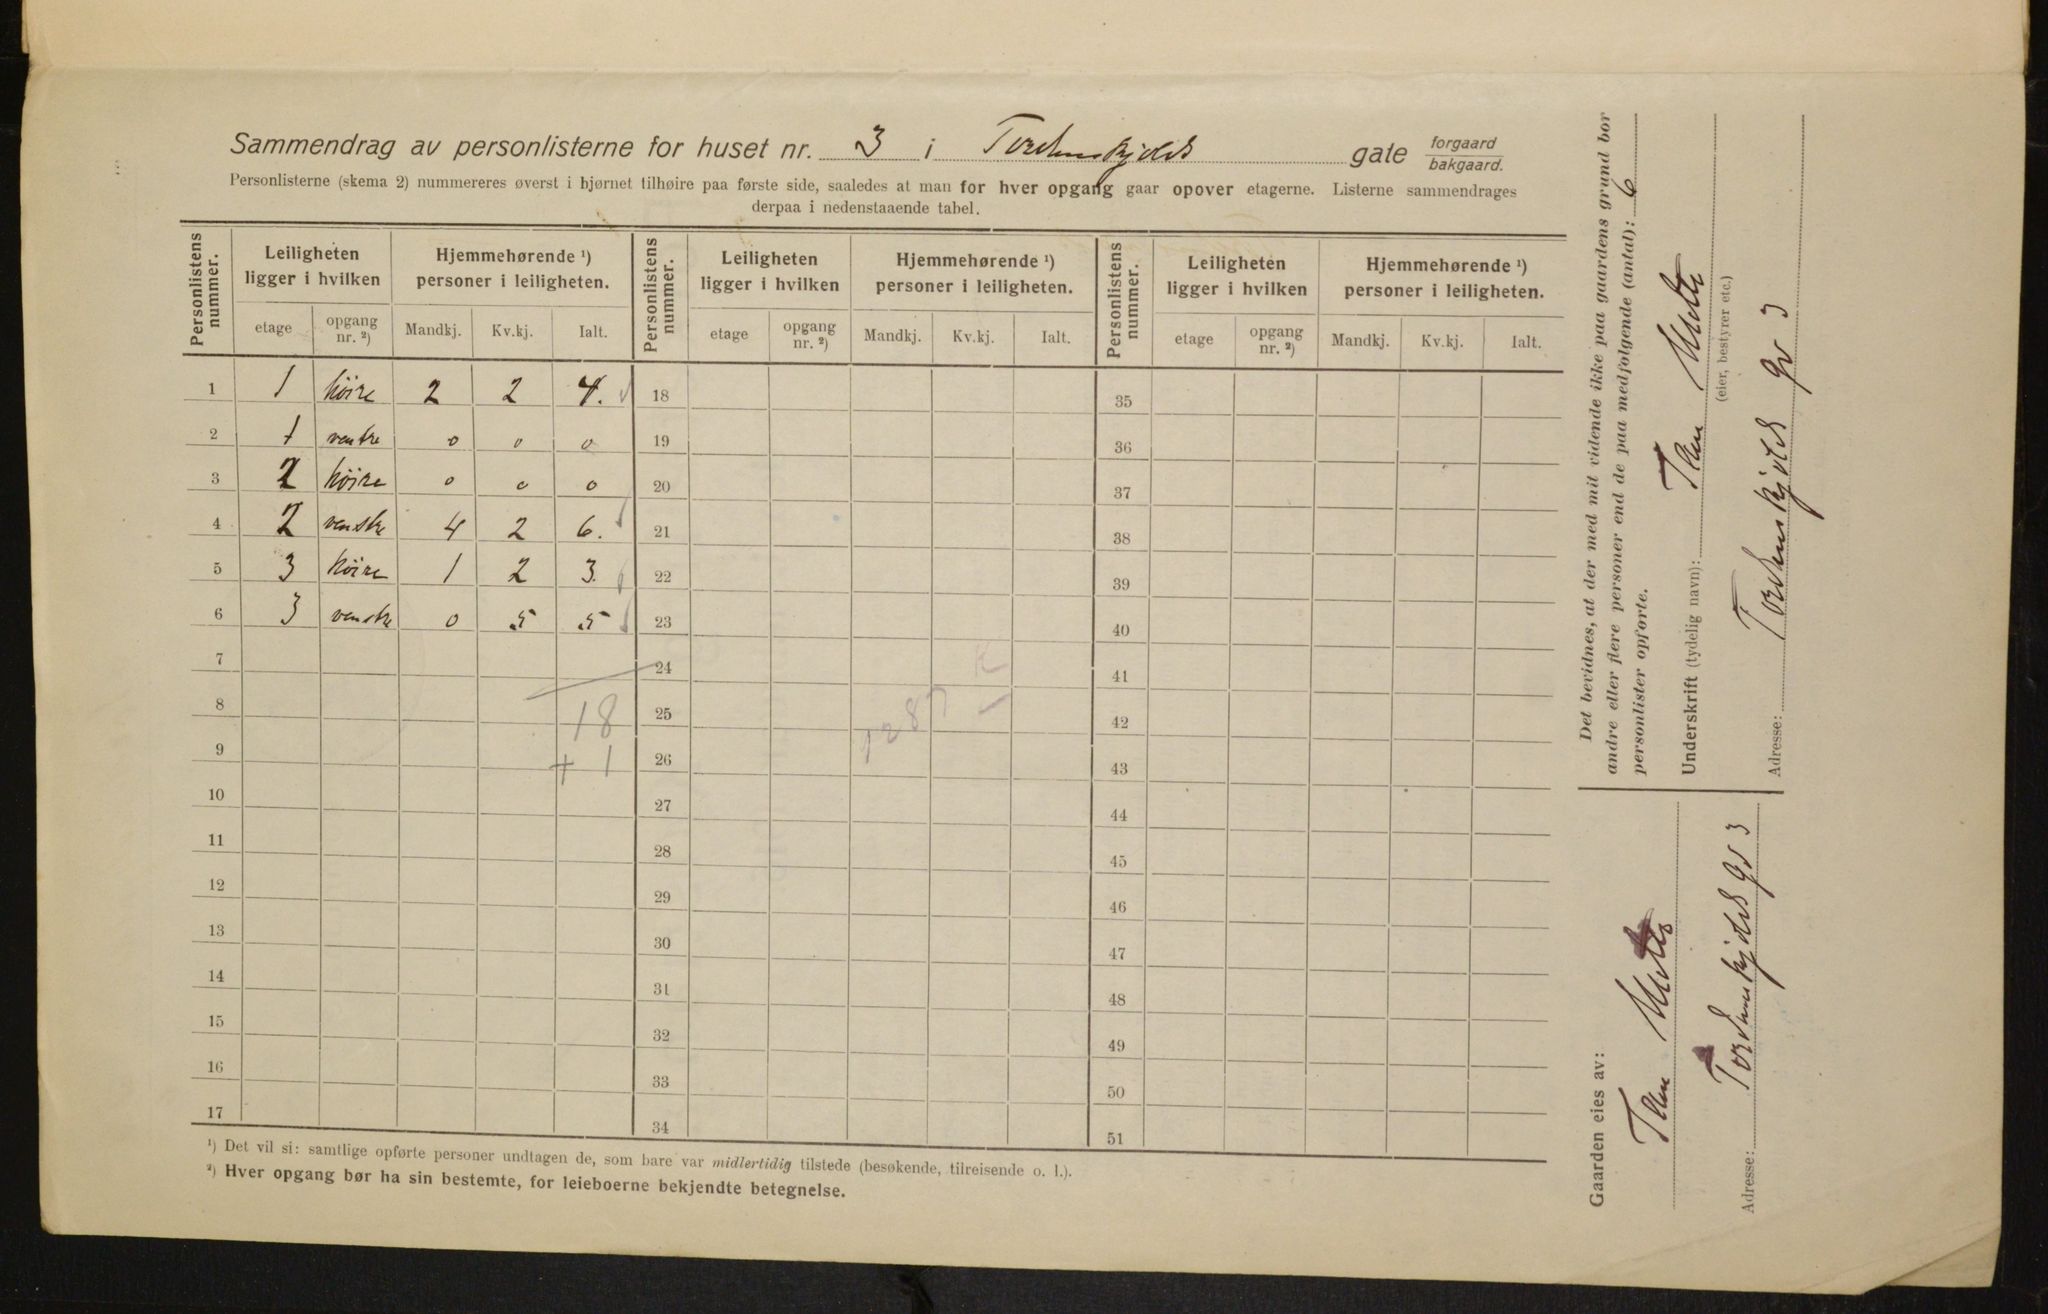 Sammendrag av personlisterne for huset nr. 3 i Tordenskjolds gate forgaard bakgaard.
Personlisterne (skema 2) nummereres øverst i hjørnet tilhøire paa første side, saaledes at man for hver opgang gaar opover etagerne. Listerne sammendrages
derpaa i nedenstaaende tabel.
Personlistens nummer. Leiligheten ligger i hvilken Hjemmehørende ¹) personer i leiligheten. Personlistens nummer. Leiligheten ligger i hvilken Hjemmehørende ¹) personer i leiligheten. Personlistens nummer. Leiligheten ligger i hvilken Hjemmehørende ¹) personer i leiligheten.
etage opgang nr. ²) Mandkj. Kv.kj. Ialt. etage opgang nr. ²) Mandkj. Kv.kj. Ialt. etage opgang nr. ²) Mandkj. Kv.kj. Ialt.
1 1 høire 2 2 4. 18 35
2 1 venstre 0 0 0 19 36
3 2 høire 0 0 0 20 37
4 2 venstre 4 2 6. 21 38
5 3 høire 1 2 3. 22 39
6 3 venstre 0 5 5 23 40
7 24 41
8 18 25 42
9 + 1 26 43
10 27 44
11 28 45
12 29 46
13 30 47
14 31 48
15 32 49
16 33 50
17 34 51
¹) Det vil si: samtlige opførte personer undtagen de, som bare var midlertidig tilstede (besøkende, tilreisende o. l.).
²) Hver opgang bør ha sin bestemte, for leieboerne bekjendte betegnelse.
Det bevidnes, at der med mit vidende ikke paa gaardens grund bor
andre eller flere personer end de paa medfølgende (antal): 6
personlister opførte.
Underskrift (tydelig navn):
(eier, bestyrer etc.)
Adresse: Tordenskjolds gt 3
Gaarden eies av:
Adresse: Tordenskjolds gt 3